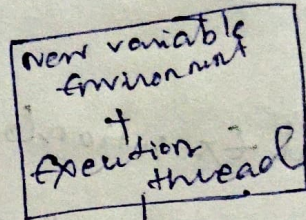 New variable
Environment
+
Execution
thread